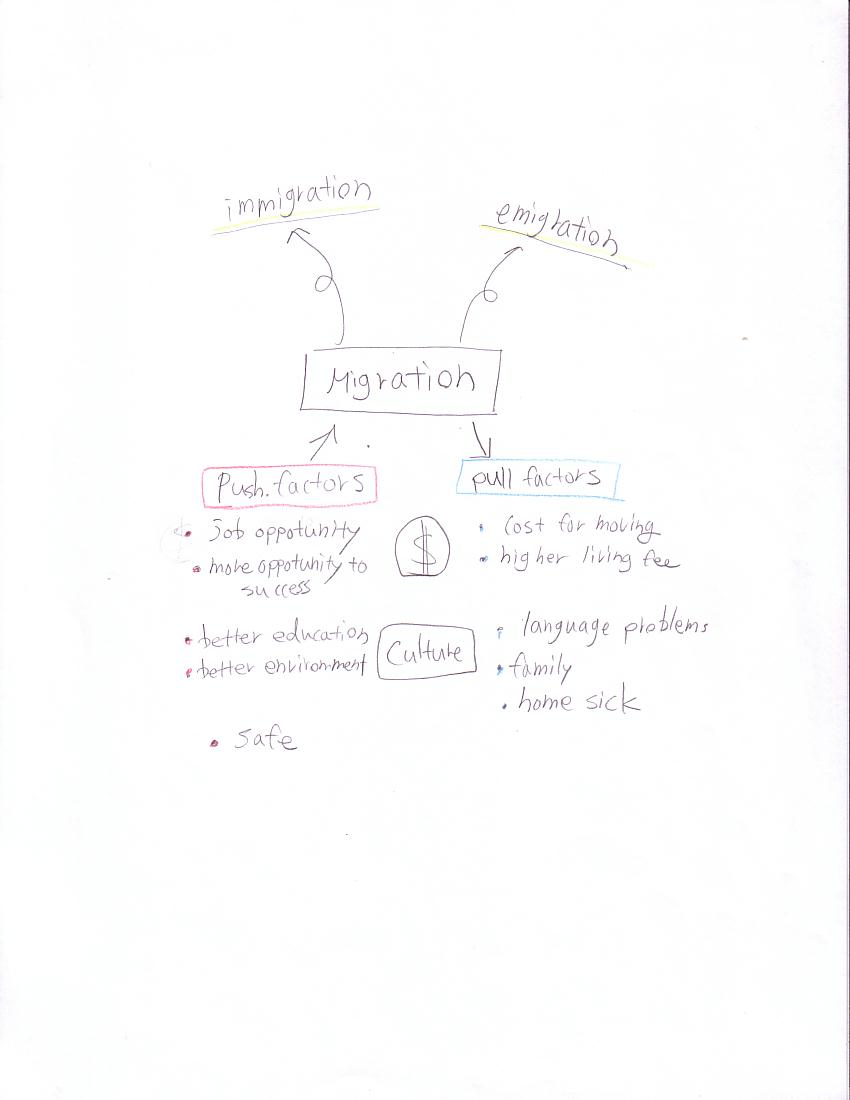 immigration
emigration
Migration
Push.factors
pull factors
Job oppotunity
more oppotunity to
success
$
cost for moving
higher living fee
better education
better environment
Culture
language problems
family
home sick
safe